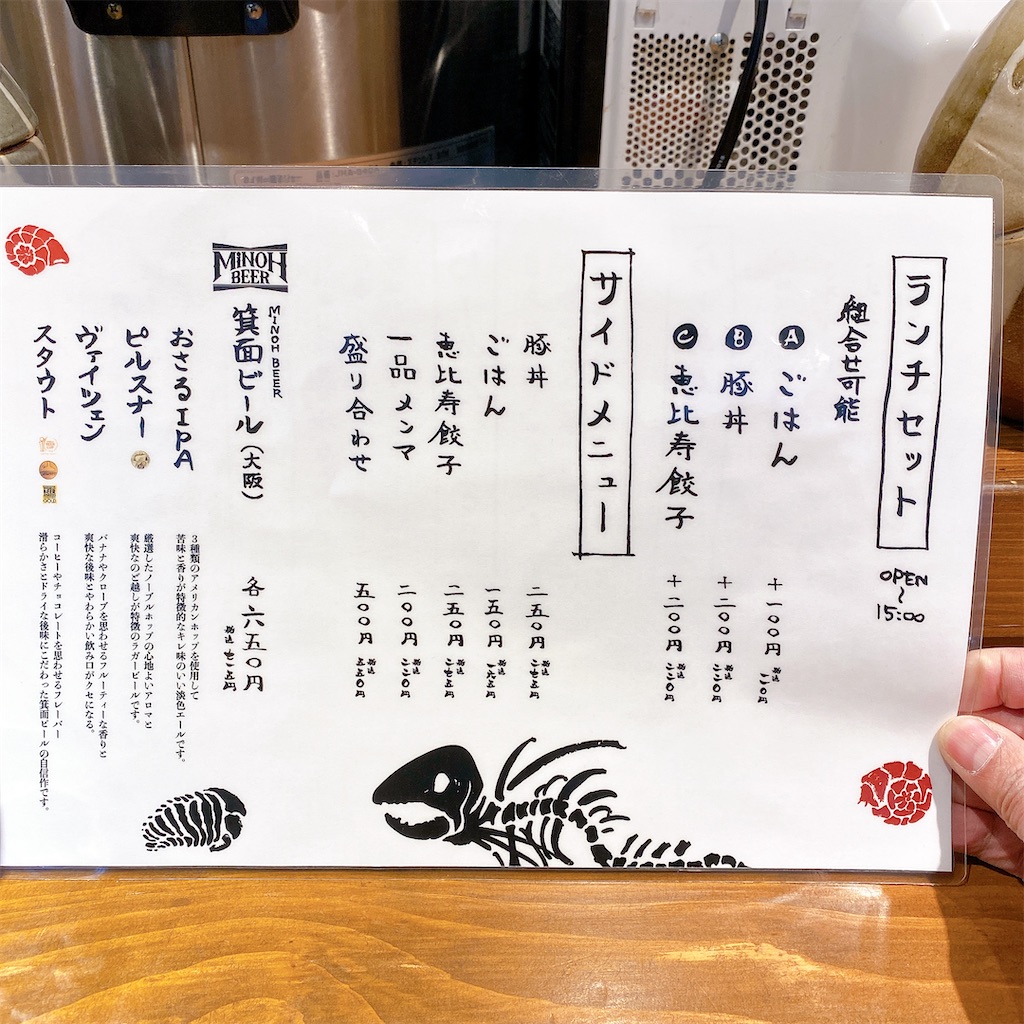 ランチセット
OPEN
~
15:00
組合せ可能
A ごはん +一〇〇円 税込 一一〇円
B 豚丼 +二〇〇円 税込 二二〇円
C 恵比寿餃子 +二〇〇円 税込 二二〇円
サイドメニュー
豚丼 二五〇円 税込 二七五円
ごはん 一五〇円 税込 一六五円
恵比寿餃子 二五〇円 税込 二七五円
一品メンマ 二〇〇円 税込 二二〇円
盛り合わせ 五〇〇円 税込 五五〇円
MINOH
BEER
MINOH BEER
箕面ビール(大阪) 各六五〇円
税込 七一五円
おさるIPA
3種類のアメリカンホップを使用して
苦味と香りが特徴的なキレ味のいい淡色エールです。
ピルスナー
厳選したノーブルホップの心地よいアロマと
爽快なのど越しが特徴のラガービールです。
ヴァイツェン
バナナやクローブを思わせるフルーティーな香りと
爽快な後味とやわらかい飲み口がクセになる。
スタウト
コーヒーやチョコレートを思わせるフレーバー
滑らかさとドライな後味にこだわった箕面ビールの自信作です。